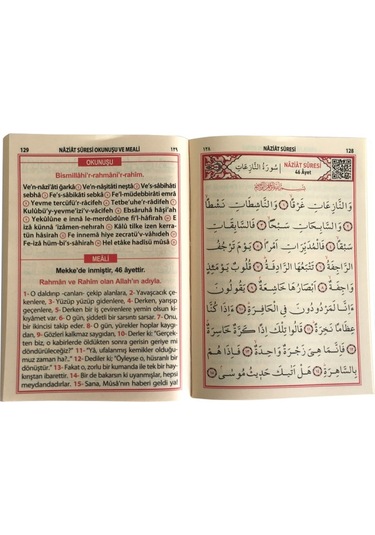 129 NÂZİÂT SÛRESİ OKUNUŞU VE MEALİ ١٢٩
OKUNUŞU
Bismillâhi'r-rahmâni'r-rahim.
Ve'n-nâzi'âti ğarkâ ① Ve'n-nâşitâti neştâ ② Ve's-sâbihâti
sebhâ ③ Fe's-sâbikâti sebkâ ④ Fe'l-müdebbirâti emrâ
⑤ Yevme tercüfü'r-râcifeh ⑥ Tetbe'uhe'r-râdifeh ⑦
Kulûbü'y-yevme'izi'v-vâcifeh ⑧ Ebsâruhâ hâşi'ah
⑨ Yekûlûne e innâ le-merdûdûne fi'l-hâfirah ⑩ E
izâ künnâ 'izâmen-nehırah ⑪ Kâlû tilke izen kerra-
tün hâsirah ⑫ Fe innemâ hiye zecratü'v-vâhıdeh ⑬
Fe-izâ hüm-bi's-sâhirah ⑭ Hel etâke hadîsü mûsâ ⑮
MEÂLİ
Mekke'de inmiştir, 46 âyettir.
Rahmân ve Rahîm olan Allah'ın adıyla.
1- O daldırıp -canları- çekip alanlara, 2- Yavaşçacık çe-
kenlere, 3- Yüzüp yüzüp gidenlere, 4- Derken, yarışıp
geçenlere, 5- Derken bir iş çevirenlere yemin olsun ki-
kıyâmet var. 6- O gün, şiddetli bir sarsıntı sarsar. 7- Onu,
bir ikincisi takip eder. 8- O gün, yürekler hoplar kaygı-
dan, 9- Gözleri kalkmaz saygıdan, 10- Derler ki: "Gerçek-
ten biz, o kabirlerde öldükten sonra gerisin geriye mi
döndürüleceğiz?" 11- "Yâ, ufalanmış kemikler olduğu-
muz zaman ha?.." 12- Dediler ki: "Öyleyse o, hüsranlı bir
dönüştür." 13- Fakat o, zorlu bir kumanda ile tek bir hay-
kırıştan ibarettir. 14- Bir de bakarsın ki uyanmışlar, hepsi
meydandadırlar. 15- Sana, Mûsâ'nın haberi geldi ya!
١٢٨ NÂZİÂT SÛRESİ 128
سُورَةُ النَّازِعَاتِ NÂZİÂT SÛRESİ
46 Âyet
بِسْمِ اللهِ الرَّحْمٰنِ الرَّحِيمِ
وَالنَّازِعَاتِ غَرْقًا ① وَالنَّاشِطَاتِ نَشْطًا
② وَالسَّابِحَاتِ سَبْحًا ③ فَالسَّابِقَاتِ
سَبْقًا ④ فَالْمُدَبِّرَاتِ اَمْرًا ⑤ يَوْمَ تَرْجُفُ
الرَّاجِفَةُ ⑥ تَتْبَعُهَا الرَّادِفَةُ ⑦ قُلُوبٌ يَوْمَئِذٍ
وَاجِفَةٌ ⑧ اَبْصَارُهَا خَاشِعَةٌ ⑨ يَقُولُونَ
ءَاِنَّا لَمَرْدُودُونَ فِي الْحَافِرَةِ ⑩ ءَاِذَا كُنَّا
عِظَامًا نَخِرَةً ⑪ قَالُوا تِلْكَ اِذًا كَرَّةٌ خَاسِرَةٌ
⑫ فَاِنَّمَا هِيَ زَجْرَةٌ وَاحِدَةٌ ⑬ فَاِذَا هُمْ
بِالسَّاهِرَةِ ⑭ هَلْ اَتٰيكَ حَدِيثُ مُوسٰى ⑮